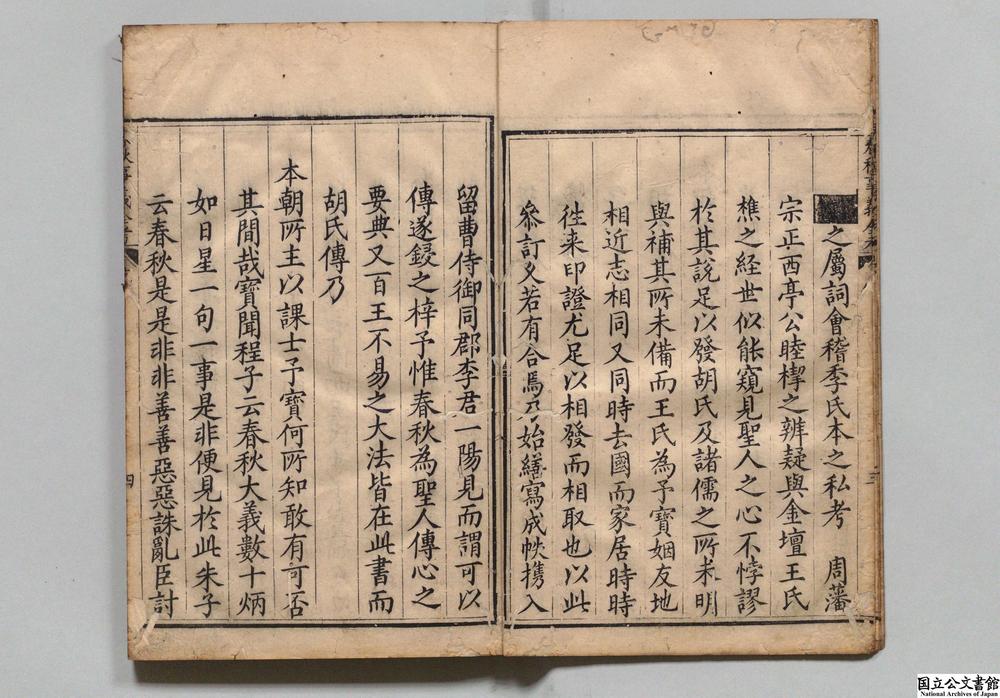 之屬詞會稽季氏本之私考　周藩
宗正西亭公睦㮮之辨疑與金壇王氏
樵之經世似能窺見聖人之心不悖謬
於其說足以發胡氏及諸儒之所未明
與補其所未備而王氏為予寶姻友地
相近志相同又同時去國而家居時時
徃来印證尤足以相發而相取也以此
叅訂久若有合焉乃始繕寫成帙攜入
留曹侍御同郡李君一陽見而謂可以
傳遂鋟之梓予惟春秋為聖人傳心之
要典又百王不易之大法皆在此書而
胡氏傳乃
本朝所主以課士予寶何所知敢有可否
其間哉寶聞程子云春秋大義數十炳
如日星一句一事是非便見於此朱子
云春秋是是非非善善惡惡誅亂臣討
三
四
国立公文書館
National Archives of Japan